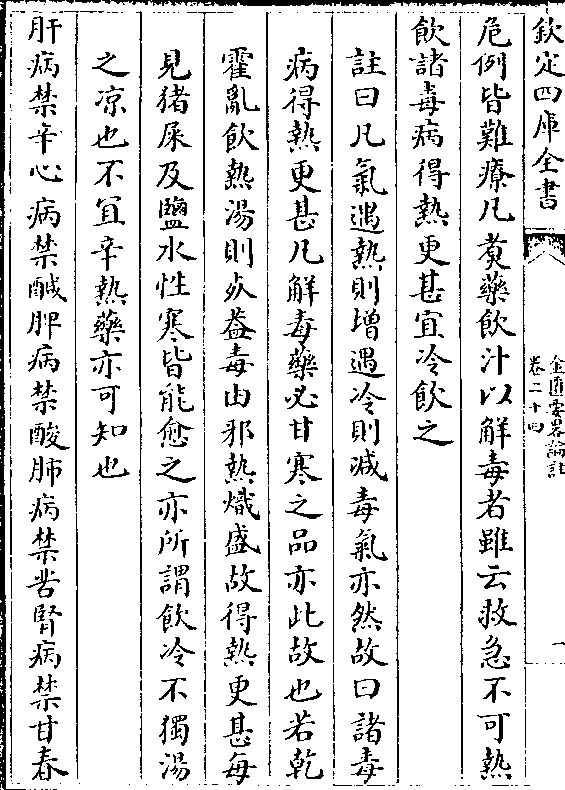 欽定四庫全書
金匱要畧論註
卷二十四
一
危例皆難療凡煑藥飲汁以解毒者雖云救急不可熱
飲諸毒病得熱更甚宜冷飲之
註曰凡氣遇熱則增遇冷則减毒氣亦然故曰諸毒
病得熱更甚凡解毒藥必甘寒之品亦此故也若乾
霍亂飲熱湯則必益毒由邪熱熾盛故得熱更甚每
見猪屎及鹽水性寒皆能愈之亦所謂飲冷不獨湯
之凉也不宜辛熱藥亦可知也
肝病禁辛心病禁鹹脾病禁酸肺病禁苦腎病禁甘春